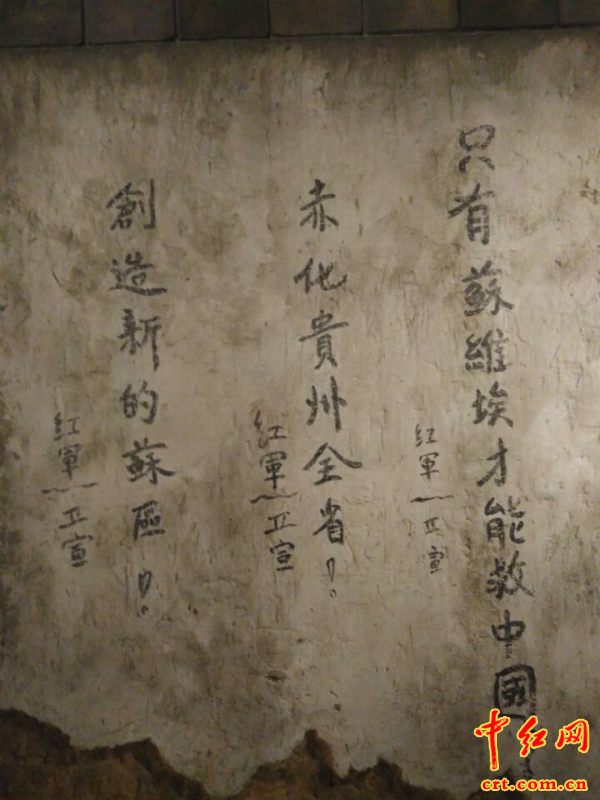 只有蘇維埃才能救中國
红軍 宣
赤化貴州全省！
红軍 宣
創造新的蘇區！
红軍 宣
中红网
crt.com.cn